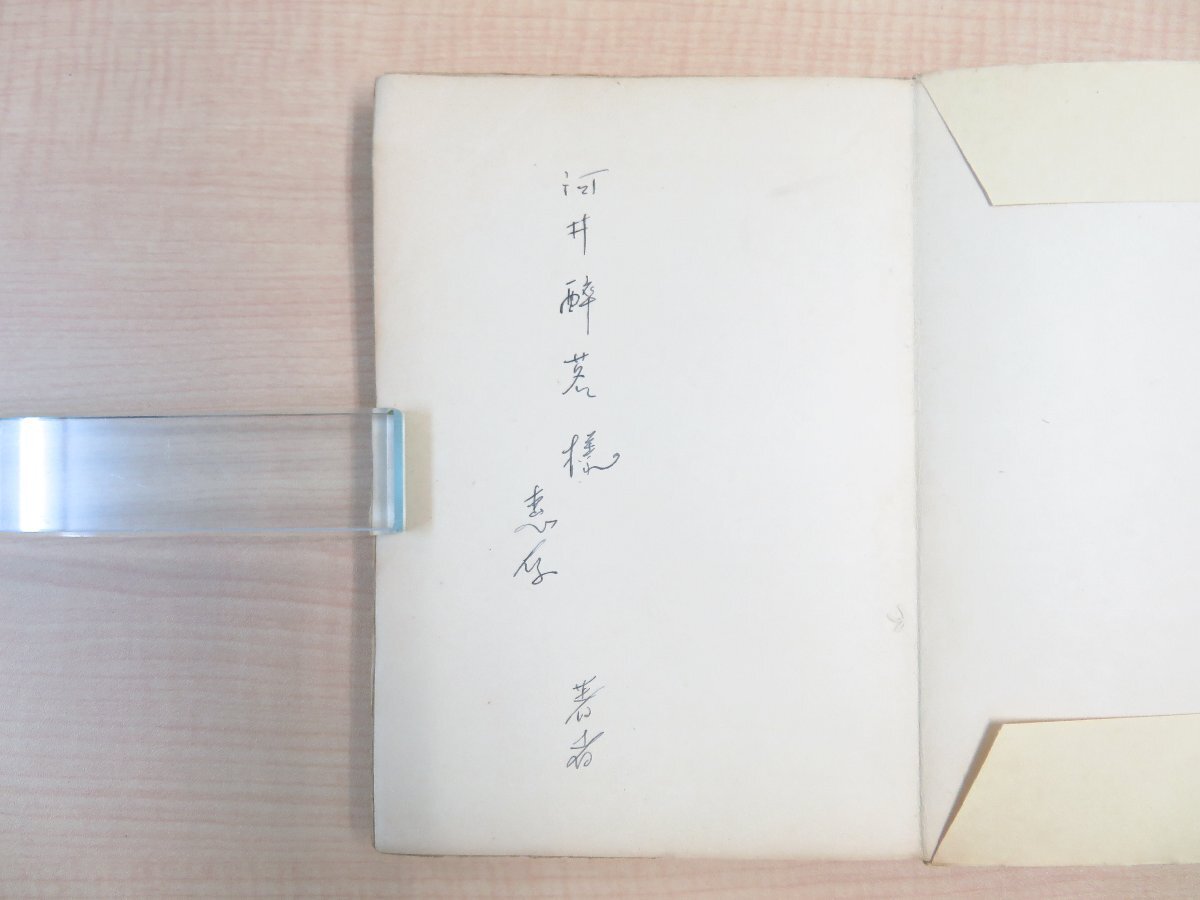 河井酔茗様
恵存
著者